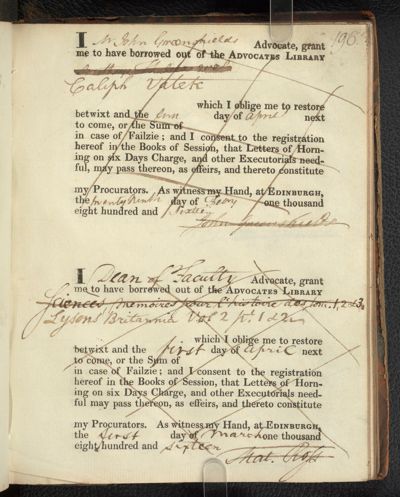 195
I Mr John Greenshields Advocate, grant
me to have borrowed out of the ADVOCATES LIBRARY
Caliph Vatek
which I oblige me to restore
betwixt and the day of April next
to come, or the Sum of
in case of Failzie; and I consent to the registration
hereof in the Books of Session, that Letters of Horn-
ing on six Days Charge, and other Executorials need-
ful, may pass thereon, as effeirs, and thereto constitute
my Procurators. As witness my Hand, at EDINBURGH,
the twenty ninth day of Feby one thousand
eight hundred and sixteen
John Greenshields
I Dean of Faculty Advocate, grant
me to have borrowed out of the ADVOCATES LIBRARY
Sciences memoires pour l'histoire des tom. 1, 2 & 3
Lysons Britannia Vol 2 pt. 1 & 2
which I oblige me to restore
betwixt and the first day of April next
to come, or the Sum of
in case of Failzie; and I consent to the registration
hereof in the Books of Session, that Letters of Horn-
ing on six Days Charge, and other Executorials need-
ful may pass thereon, as effeirs, and thereto constitute
my Procurators. As witness my Hand, at EDINBURGH,
the first day of March one thousand
eight hundred and sixteen
Mat. Ross